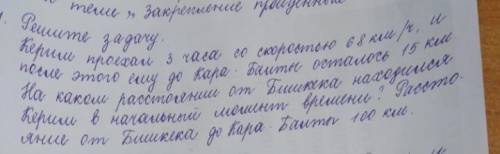 теме " Закрепление пройденных
1. Решите задачу.
Керим проехал 3 часа со скоростью 68 км/ч. и
после этого ему до Кара-Балты осталось 15 км.
На каком расстоянии от Бишкека находился
Керим в начальный момент времени? Рассто-
яние от Бишкека до Кара-Балты 100 км.